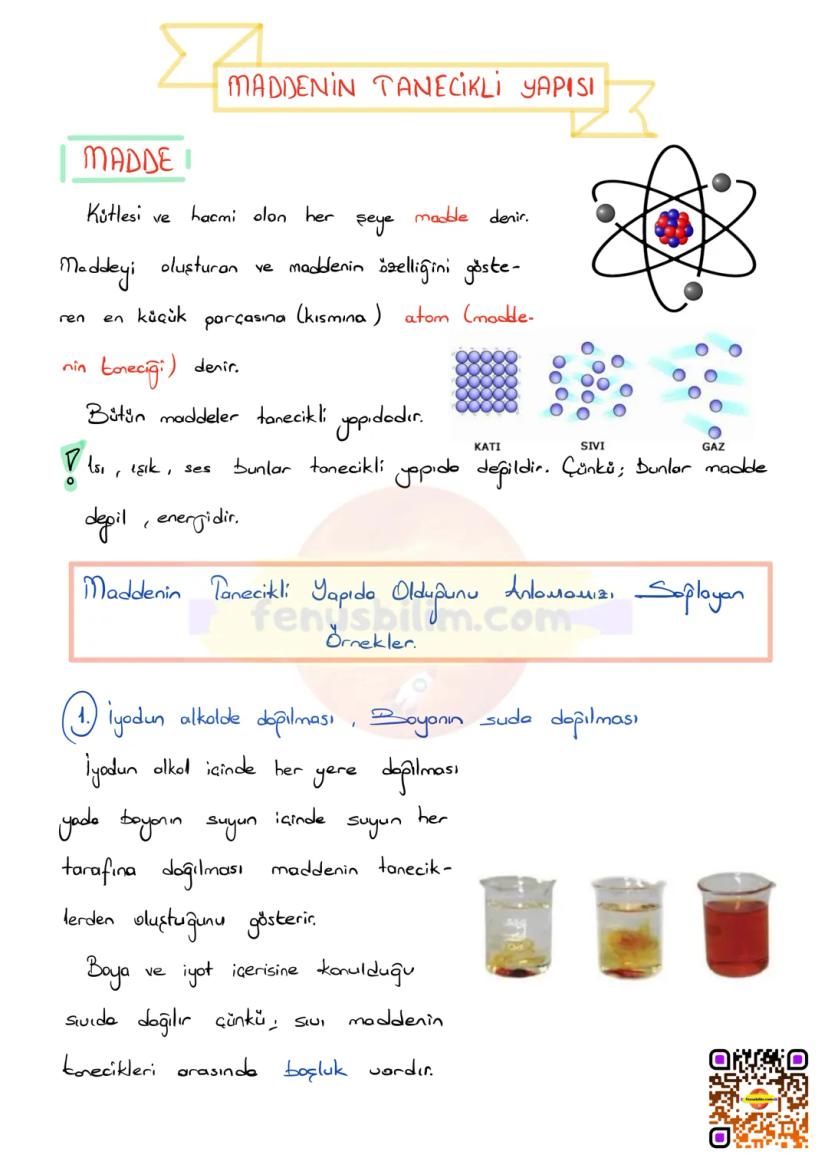 MADDENİN TANECİKLİ YAPISI
MADDE
Kütlesi ve hacmi olan her şeye madde denir.
Maddeyi oluşturan ve maddenin özelliğini göste-
ren en küçük parçasına (kısmına) atom (madde-
nin taneciği) denir.
KATI SIVI GAZ
Bütün maddeler tanecikli yapıdadır.
! Isı, ışık, ses bunlar tanecikli yapıda değildir. Çünkü; bunlar madde
değil, energidir.
Maddenin Tanecikli Yapıda Olduğunu Anlamamızı Sağlayan
Örnekler.
fenusbilim.com
1. İyodun alkolde dağılması, Boyanın suda dağılması
İyodun alkol içinde her yere dağılması
yada boyanın suyun içinde suyun her
tarafına dağılması maddenin tanecik-
lerden oluştuğunu gösterir.
Boya ve iyot içerisine konulduğu
sıvıda dağılır çünkü; sıvı maddenin
tanecikleri arasında boşluk vardır.
fenusbilim.com